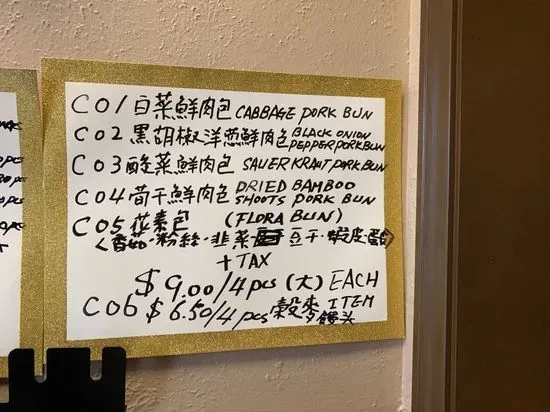 C01白菜鮮肉包 CABBAGE PORK BUN
C02黑胡椒洋蔥鮮肉包 BLACK ONION
PEPPER PORK BUN
C03酸菜鮮肉包 SAUERKRAUT PORK BUN
C04荀干鮮肉包 DRIED BAMBOO
SHOOTS PORK BUN
C05花素包 (FLORA BUN)
(香菇·粉絲·韭菜 豆干·蝦皮·蛋)
+TAX
$9.00/4pcs(大)EACH
C06 $6.50/4pcs 穀麥 ITEM
饅头